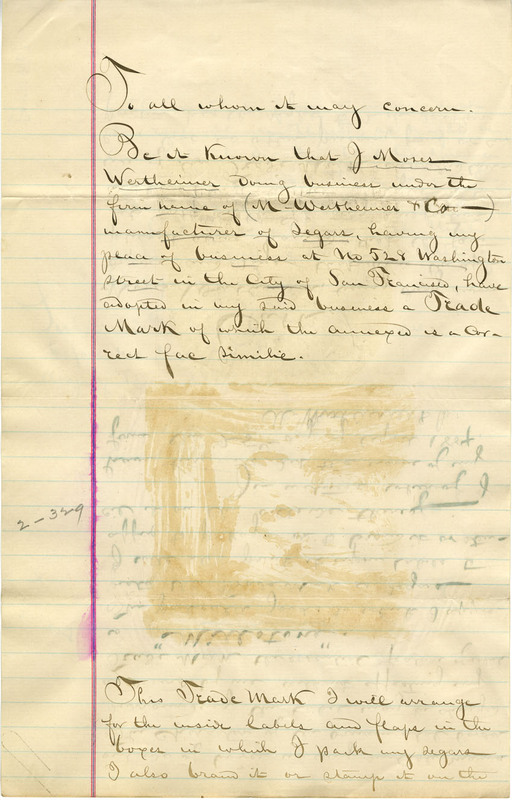 To all whom it may concern.
Be it Known that I Moses
Wertheimer doing business under the
firm name of (M Wertheimer & Co —)
manufacturer of Segars, having my
place of business at No 528 Washington
street in the City of San Francisco, have
adopted in my said business a Trade
Mark of which the annexed is a Cor-
rect fac Similie.
2-329
This Trade Mark I will arrange
for the inside labels and flaps in the
boxes in which I pack my segars
I also brand it or stamp it on the